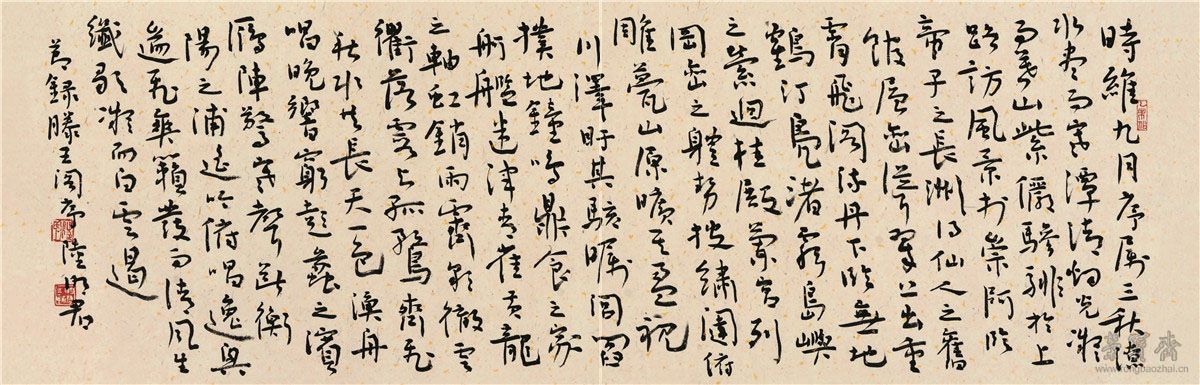 時維九月序屬三秋潦
水尽而寒潭清烟光凝
而暮山紫儼驂騑於上
路訪風景於崇阿臨
帝子之長洲得仙人之舊
館層巒聳翠上出重
霄飛閣流丹下臨無地
鶴汀鳧渚窮島嶼
之縈迴桂殿蘭宮列
岡巒之體勢披繡闥俯
雕甍山原曠其盈視
川澤盱其駭矚閭閻
撲地鐘鳴鼎食之家
舸艦迷津青雀黃龍
之軸虹銷雨霽彩徹雲
衢落霞與孤鶩齊飛
秋水共長天一色漁舟
唱晚響窮彭蠡之濱
雁陣驚寒聲斷衡
陽之浦遙吟俯唱逸興
遄飛爽籟發而清風生
纖歌凝而白雲遏
節錄滕王閣序 陸明君
榮寶齋
www.rongbaozhai.cn